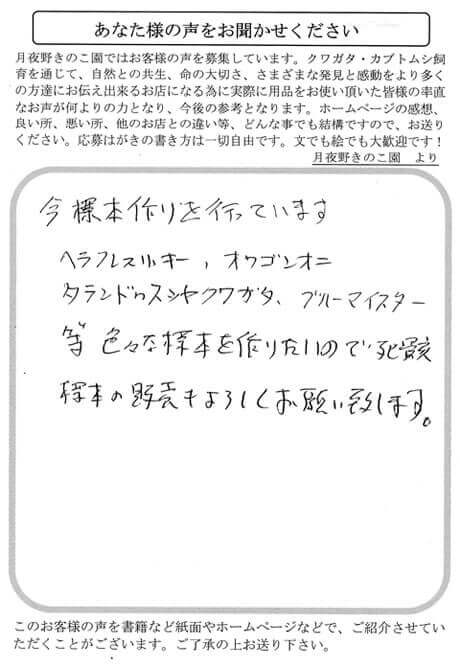 あなた様の声をお聞かせください
月夜野きのこ園ではお客様の声を募集しています。クワガタ・カブトムシ飼
育を通じて、自然との共生、命の大切さ、さまざまな発見と感動をより多く
の方達にお伝え出来るお店になる為に実際に用品をお使い頂いた皆様の率直
なお声が何よりの力となり、今後の参考となります。ホームページの感想、
良い所、悪い所、他のお店との違い等、どんな事でも結構ですので、お送り
ください。応募はがきの書き方は一切自由です。文でも絵でも大歓迎です！
月夜野きのこ園　より
今標本作りを行っています
ヘラクレスリッキー，オウゴンオニ
タランドゥスツヤクワガタ、ブルーマイスター
等色々な標本を作りたいので死骸
標本の販売もよろしくお願い致します。
このお客様の声を書籍など紙面やホームページなどで、ご紹介させてい
ただくことがございます。ご了承の上お送り下さい。